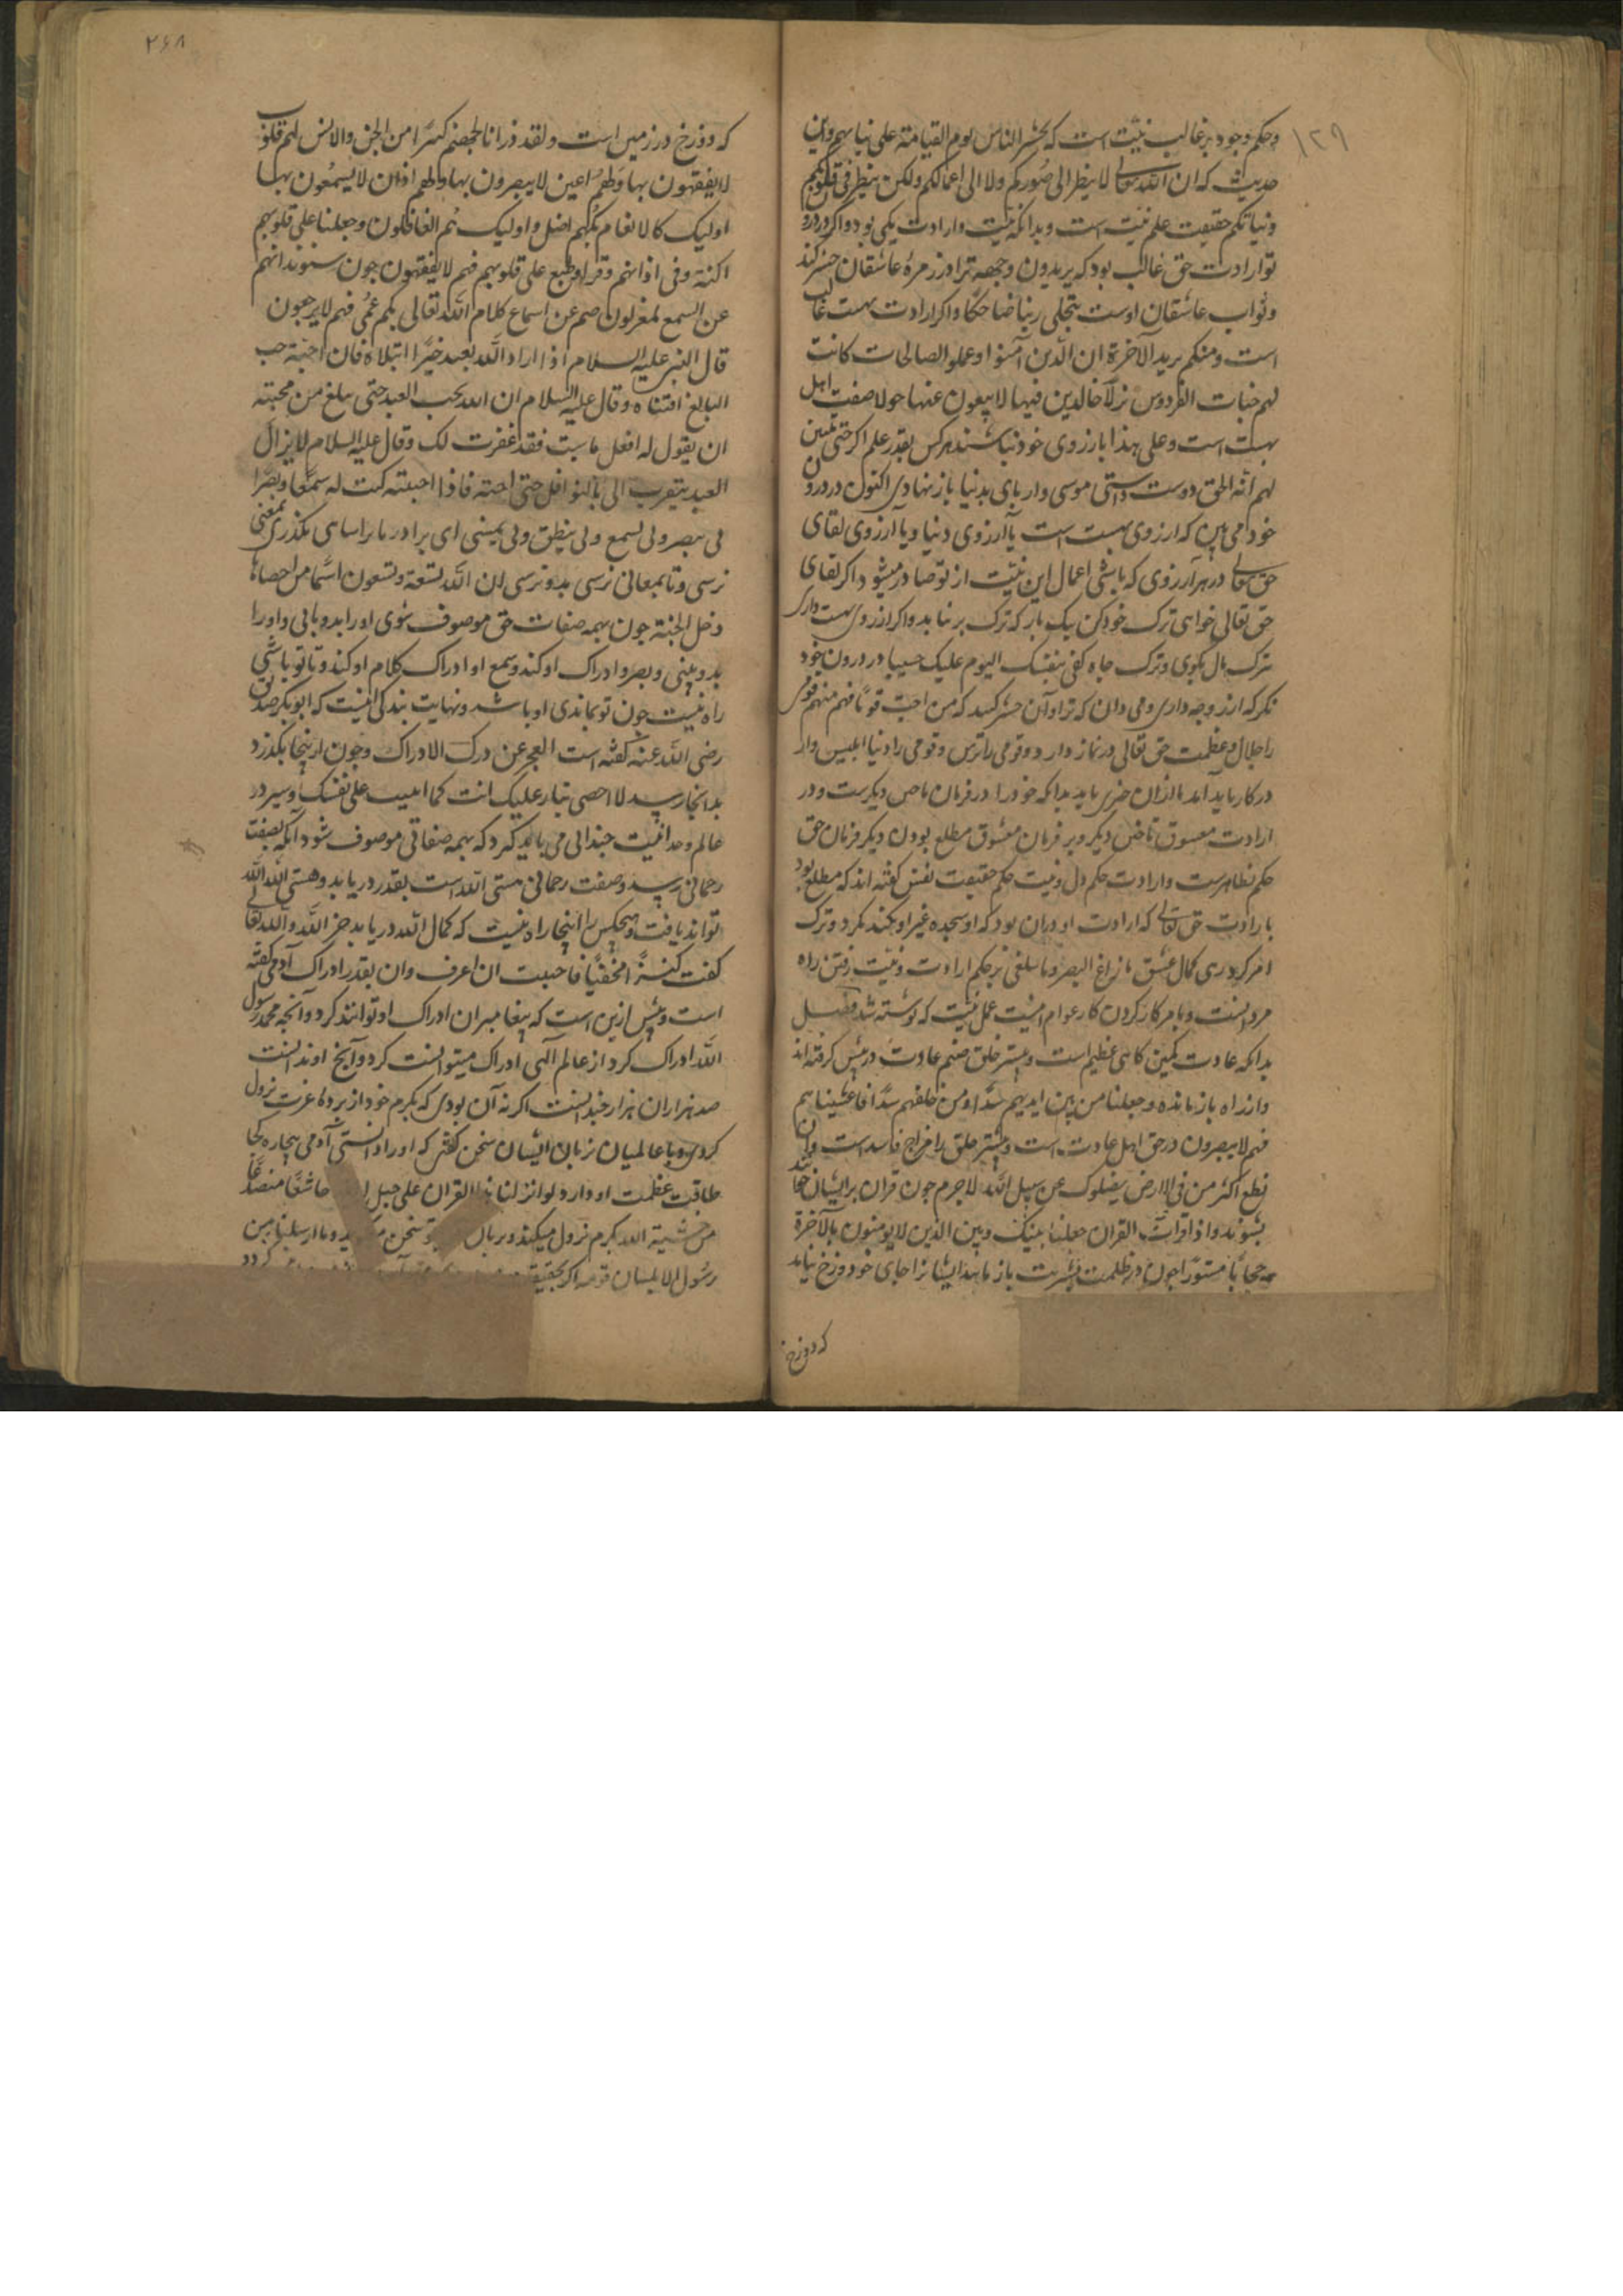 ۱۲۹
وحکم وجود بر غالب نیّت است که یحشر الناس یوم القیامة علی نیاتهم واین
حدیث که ان الله تعالی لا ینظر الی صورکم ولا الی اعمالکم ولکن ینظر فی قلوبکم
ونیاتکم حقیقت علم نیت است وبدانکه نیت وارادت یکی بود واکر در درون
تو ارادت حق غالب بود که یریدون وجهه ترا در زمرهٔ عاشقان حشر کند
وثواب عاشقان اوست یتجلی ربنا ضاحکا واکر ارادت بهشت غالب
است ومنکم یرید الآخرة ان الّذین آمنوا وعملو الصالحات کانت
لهم جنات الفردوس نزلاً خالدین فیها لا یبغون عنها حولا صفت اهل
بهشت است وعلی هذا بارزوی خود نباشند هر کس بقدر علم اکر حتی یتبین
لهم انّه الحق دوست داشتی موسی وار بای بدنیا باز نهادی اکنون در درون
خود می بین که ارزوی بهشت است یا آرزوی دنیا ویا آرزوی لقای
حق تعالی در هر آرزوی که باشی اعمال این نیّت از تو صادر میشود اکر لقای
حق تعالی خواهی ترک خود کن یک بار که ترک بر نیاید واکر ارزوی بهشت داری
ترک مال بکوی وترک جاه کفی بنفسک الیوم علیک حسیبا در درون خود
نکر که ارزو چه داری ومی دان که ترا وآن حشر کنند که من احبّ قوما فهو منهم قومی
را جلال وعظمت حق تعالی در نماز دارد وقومی را ترس وقومی را دنیا ابلیس وار
در کار باید آمد تا ازان خبری یابد بدانکه خود را در فرمان باختن دیکرست ودر
ارادت معشوق باختن دیکر وبر فرمان معشوق مطلع بودن دیکر فرمان حق
حکم ظاهرست وارادت حکم دل ونیت حکم حقیقت نفس کفته اند که مطلع بود
بارادت حق تعالی که ارادت او دران بود که او سجده غیر او نکند نکرد وترک
امر کرد ری کمال عشق ما زاغ البصر وما طغی بر حکم ارادت ونیّت رفتن راه
مردانست وبامر کار کردن کار عوام اینست عمل نیّت که نوشته شد فصل
بدانکه عادت کمین کاهی عظیم است وبیشتر خلق صنم عادت در پیش کرفته اند
واز راه باز مانده وجعلنا من بین ایدیهم سدّا ومن خلفهم سدّا فاغشیناهم
فهم لا یبصرون در حق اهل عادت است وبیشتر خلق را مزاج فاسد است وان
تطع اکثر من فی الارض یضلوک عن سبیل الله لاجرم چون قران بر ایشان خوانند
بشنوند واذا قرات القران جعلنا بینک وبین الذین لا یومنون بالآخرة
حجابا مستورا چون در ظلمت بشریت باز مانند ایشانرا جای خود دوزخ نیاید
که دوزخ
۲۶۸
که دوزخ در زمین است ولقد ذرانا لجهنم کثیرا من الجن والانس لهم قلوب
لا یفقهون بها ولهم اعین لا یبصرون بها ولهم اذان لا یسمعون بها
اولیک کالانعام بل هم اضل واولیک هم الغافلون وجعلنا علی قلوبهم
اکنة وفی اذانهم وقرا وطبع علی قلوبهم فهم لا یفقهون چون شنوند انهم
عن السمع لمعزلون صم عن استماع کلام الله تعالی بکم عمی فهم لا یرجعون
قال النبی علیه السلام اذا اراد الله بعبد خیرا ابتلاه فان احبّه حب
البالغ افتناه وقال علیه السلام ان الله یحب العبد حتی یبلغ من محبته
ان یقول له افعل ما شیت فقد غفرت لک وقال علیه السلام لا یزال
العبد یتقرب الی بالنوافل حتی احبه فاذا احببته کنت له سمعا وبصرا
لی یبصر ولی یسمع ولی ینطق ولی یمشی ای برادر تا بر اسامی بکذری بمعنی
نرسی وتا بمعانی نرسی بدو نرسی ان الله تسعة وتسعون اسما من احصاها
دخل الجنة چون بهمه صفات حق موصوف شوی او را بدو یابی واو را
بدو بینی وبصر وادراک او کند وسمع او ادراک کلام او کند وتا تو باشی
راه نیست چون تو نماندی او باشد ونهایت بندکی اینست که ابوبکر صدیق
رضی الله عنه کفته است العجز عن درک الادراک وچون ازینجا بکذرد
بدانجا رسد لا احصی ثناء علیک انت کما اثنیت علی نفسک وسیر در
عالم وحدانیت چندانی می باید کرد که بهمه صفاتی موصوف شود آنکه بصفت
رحمانی رسد وصفت رحمانی هستی الله است بقدر دریابد وهستی الله الله
تواند یافت وهیچکس را اینجا راه نیست که کمال الله دریابد جز الله والله تعالی
کفت کنت کنزاً مخفیّا فاحببت ان اعرف وان بقدر ادراک آدمی کفته
است وبیش ازین است که پیغامبران ادراک او توانند کرد وآنچه محمد رسول
الله ادراک کرد از عالم الهی ادراک میتوانست کرد وآنچ او ندانست
صد هزاران هزار چندانست اکر نه آن بودی که بکرم خود از پردهٔ عزت نزول
کردی وبا عالمیان بزبان ایشان سخن کفتی که او را دانستی آدمی بیچاره کجا
طاقت عظمت او دارد لو انزلنا هذا القران علی جبل خاشعا متصدعا
من خشیة الله بکرم نزول میکند وبزبان تو سخن وما ارسلنا من
رسول الا بلسان قومه اکر بحقیقت